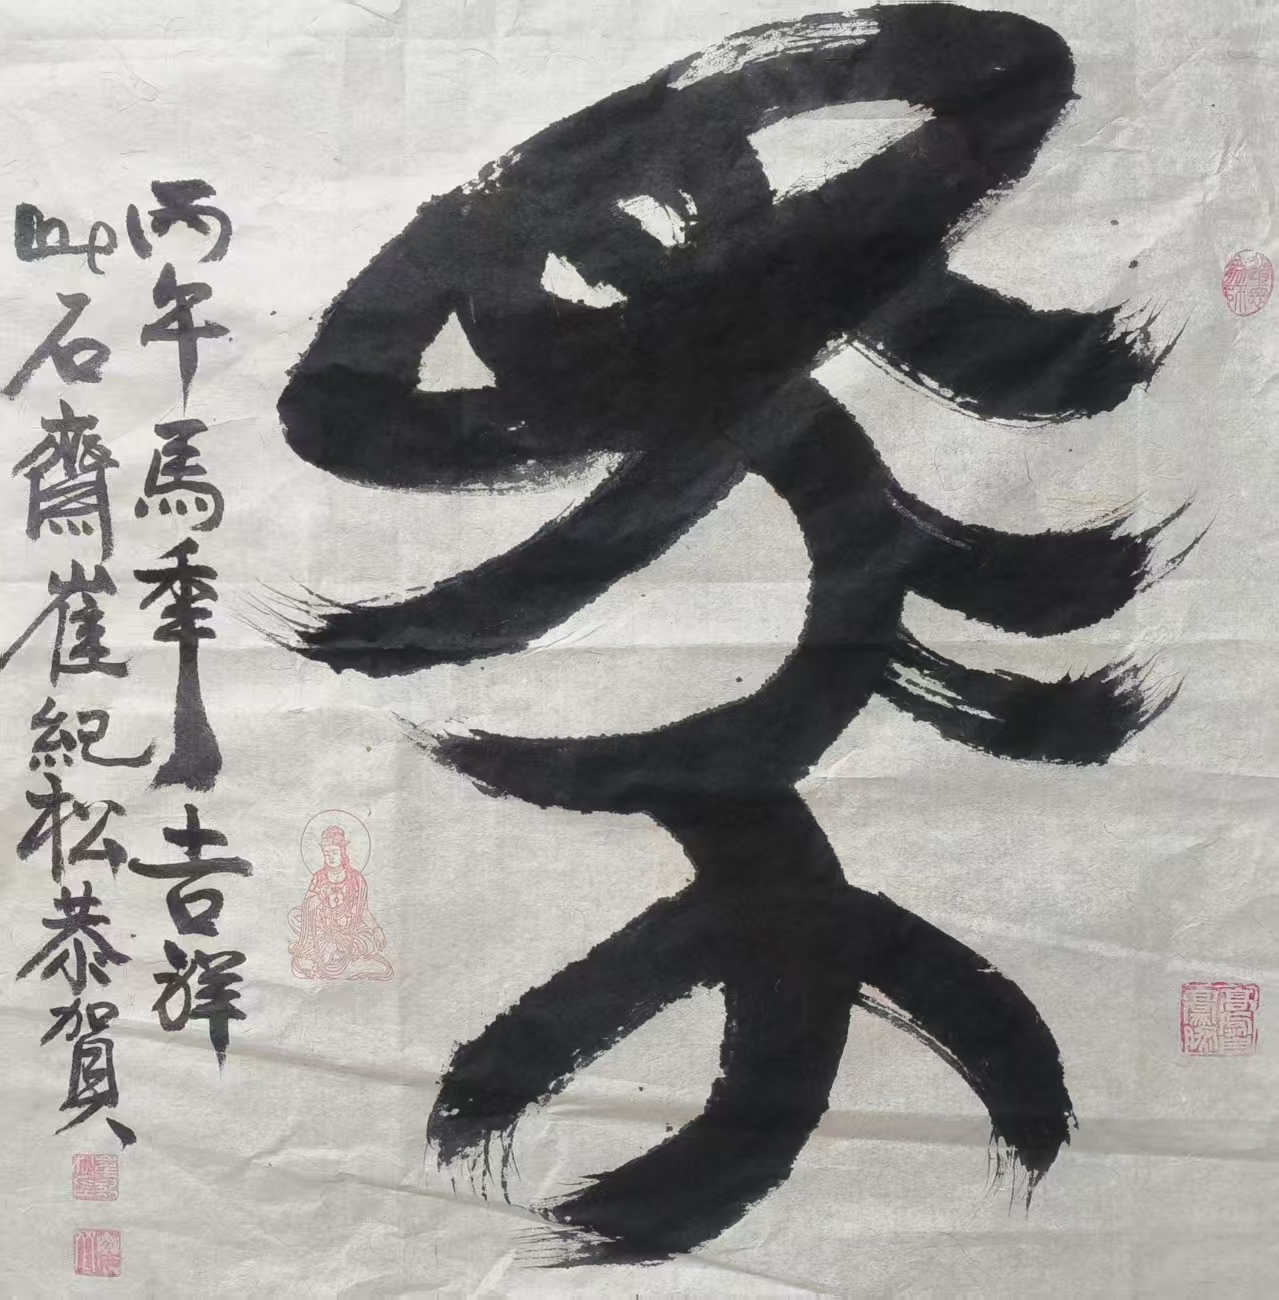 馬
丙午馬年吉祥
石齋崔紀松恭賀